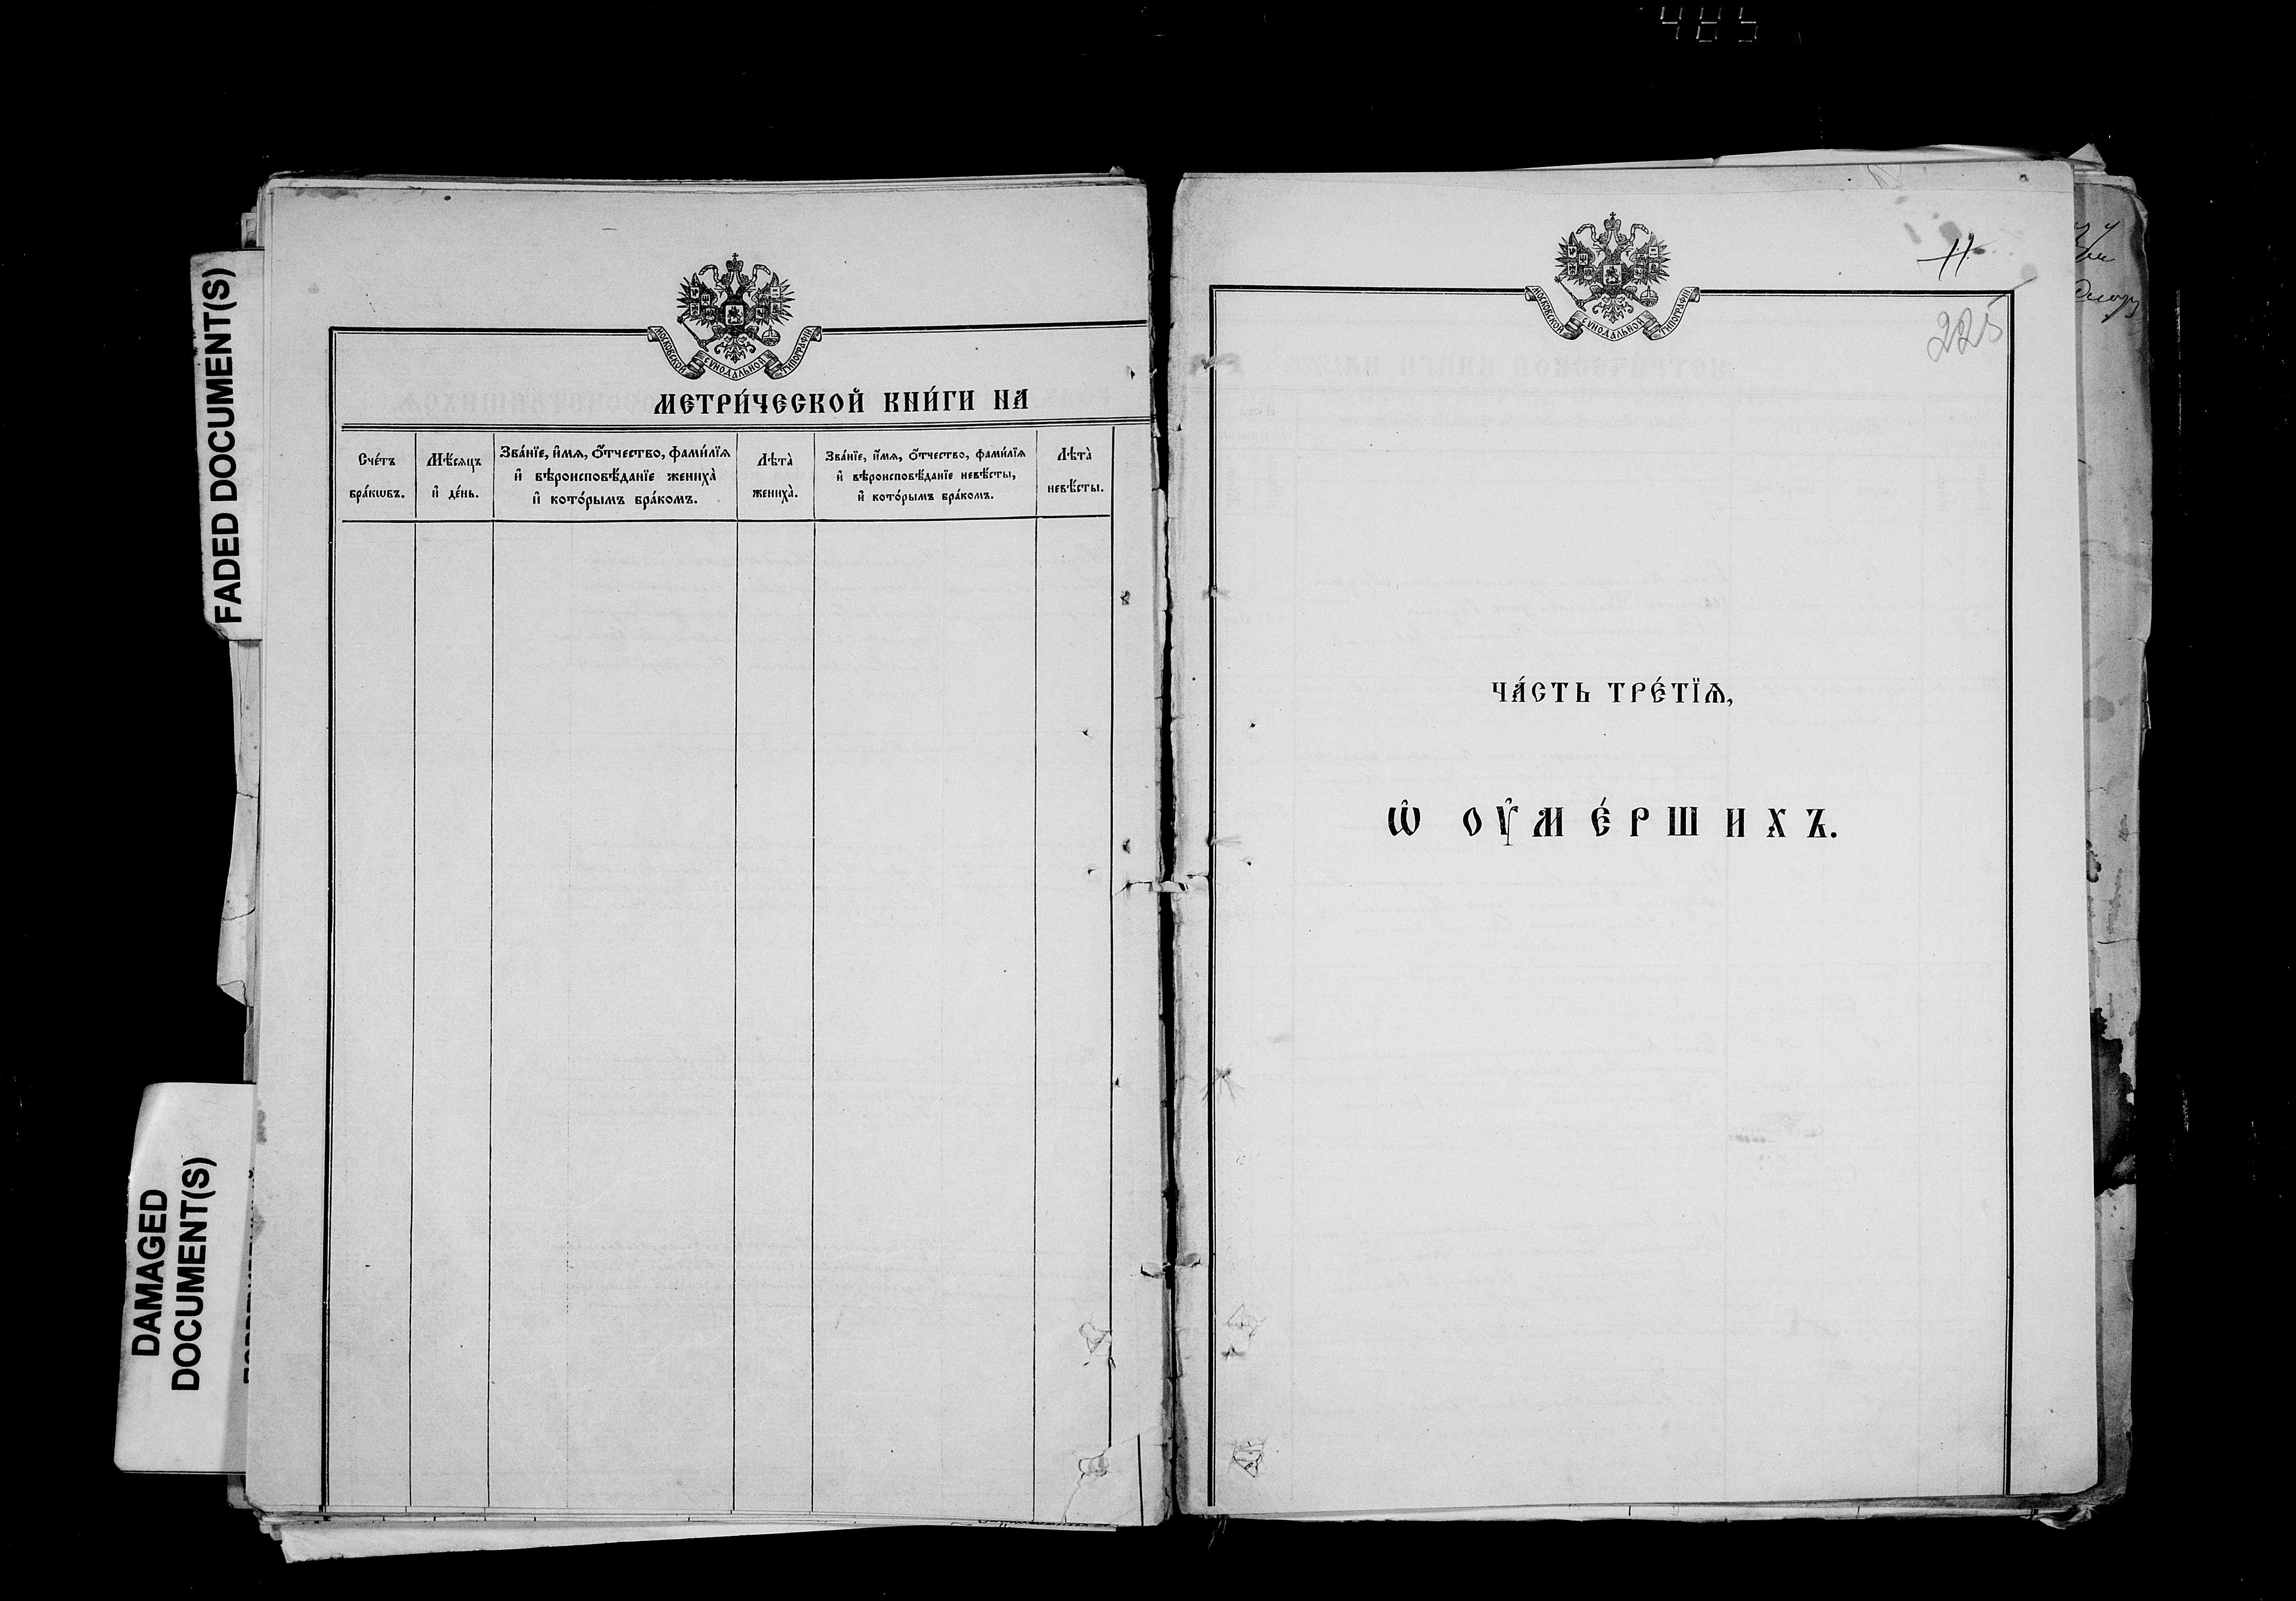 485
FADED DOCUMENT(S)
DAMAGED
DOCUMENT(S)
МОСКОВСКОЙ СѴНОДАЛЬНОЙ ТИПОГРАФІИ
МЕТРИ́ЧЕСКОЙ КНИ́ГИ НА
Сче́тъ
бра́кѡвъ.
Мѣ́сяцъ
и҆ де́нь.
Зва́нїе, и҆́мѧ, ѻ҆́тчество, фами́лїѧ
и҆ вѣроисповѣ́данїе жениха̀
и҆ кото́рымъ бра́комъ.
Лѣта̀
жениха̀.
Зва́нїе, и҆́мѧ, ѻ҆́тчество, фами́лїѧ
и҆ вѣроисповѣ́данїе невѣ́сты,
и҆ кото́рымъ бра́комъ.
Лѣта̀
невѣ́сты.
МОСКОВСКОЙ СѴНОДАЛЬНОЙ ТИПОГРАФІИ
11
225
ЧА́СТЬ ТРЕ́ТЇѦ,
Ѡ҆ ОУ҆МЕ́РШИХЪ.